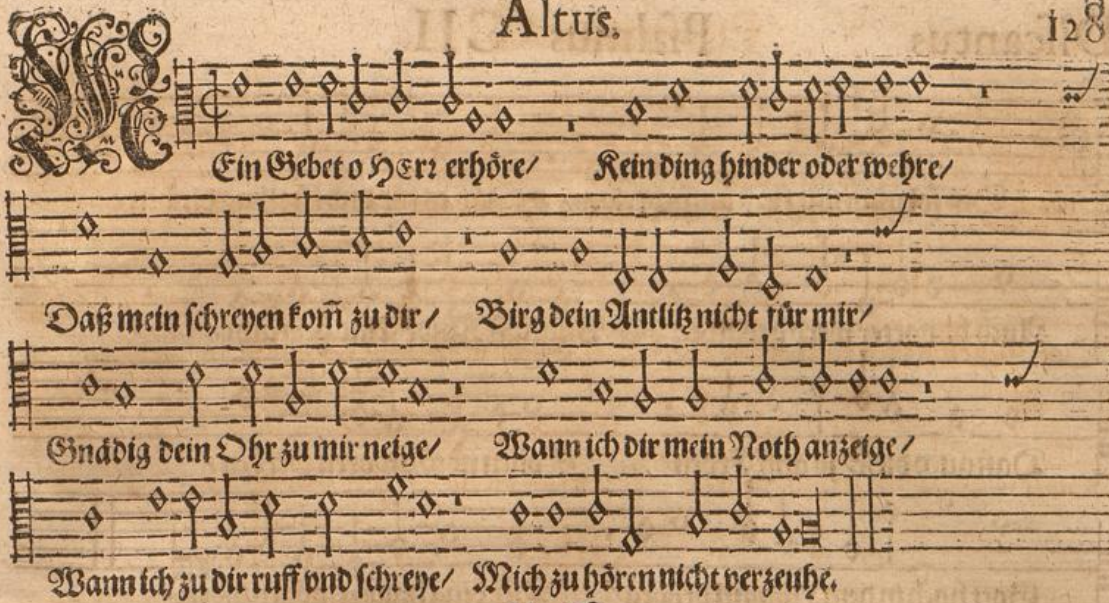 Altus. 128
MEin Gebet o HErr erhöre/ Kein ding hinder oder wehre/
Daß mein schreyen kom̃ zu dir/ Birg dein Antlitz nicht für mir/
Gnädig dein Ohr zu mir neige/ Wann ich dir mein Noth anzeige/
Wann ich zu dir ruff vnd schreye/ Mich zu hören nicht verzeuhe.